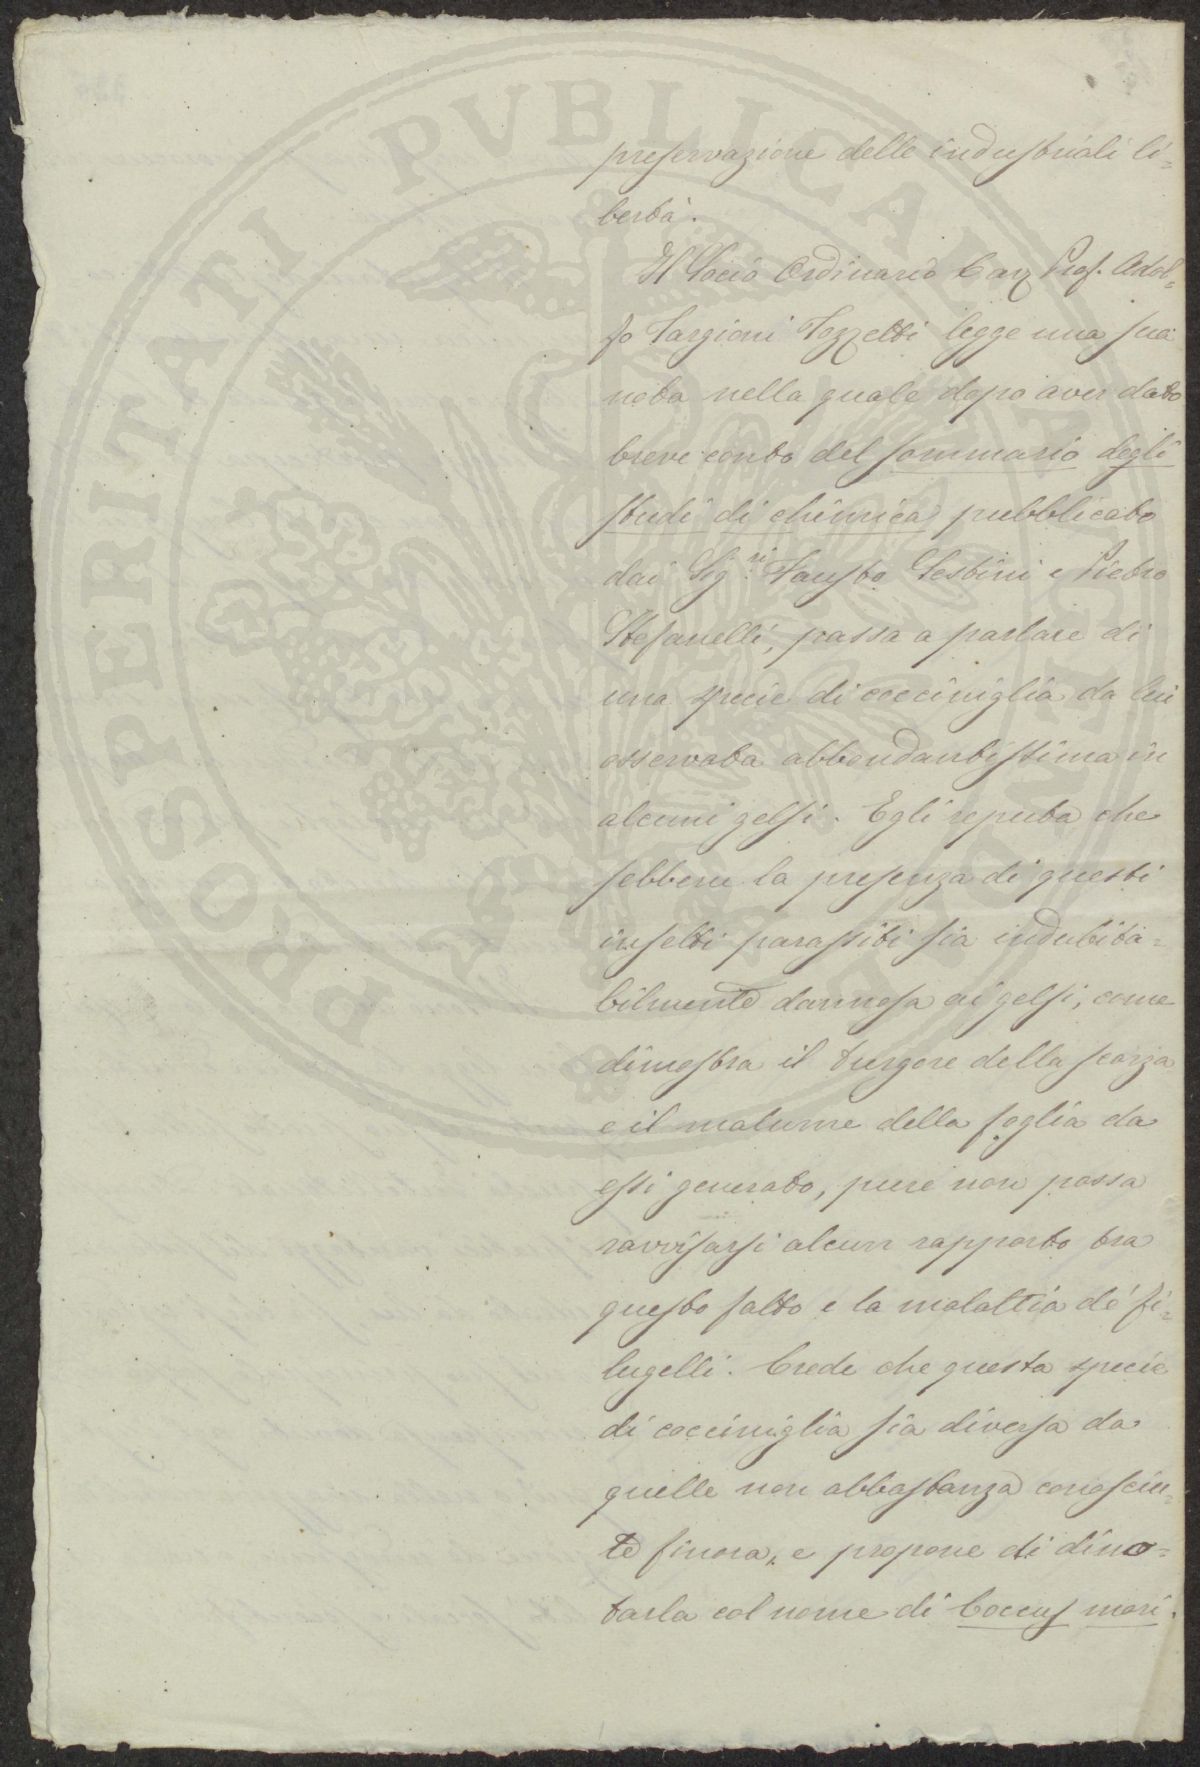 PROSPERITATI PVBLICAE AVGENDAE
preservazione delle industriali li=
bertà.
Il Socio Ordinario Cav. Prof. Adol=
fo Targioni Tozzetti legge una sua
nota nella quale dopo aver dato
breve conto del sommario degli
studi di chimica pubblicato
dai Sig.ri Fausto Sestini e Pietro
Stefanelli, passa a parlare di
una specie di cocciniglia da lui
osservata abbondantissima in
alcuni gelsi. Egli reputa che
sebbene la presenza di questi
insetti parassiti sia indubita=
bilmente dannosa ai gelsi, come
dimostra il turgore della scorza
e il malume della foglia da
essi generato, pure non possa
ravvisarsi alcun rapporto tra
questo fatto e la malattia de' fi=
lugelli. Crede che questa specie
di cocciniglia sia diversa da
quelle non abbastanza conosciu=
te finora, e propone di dino=
tarla col nome di Coccus mori.